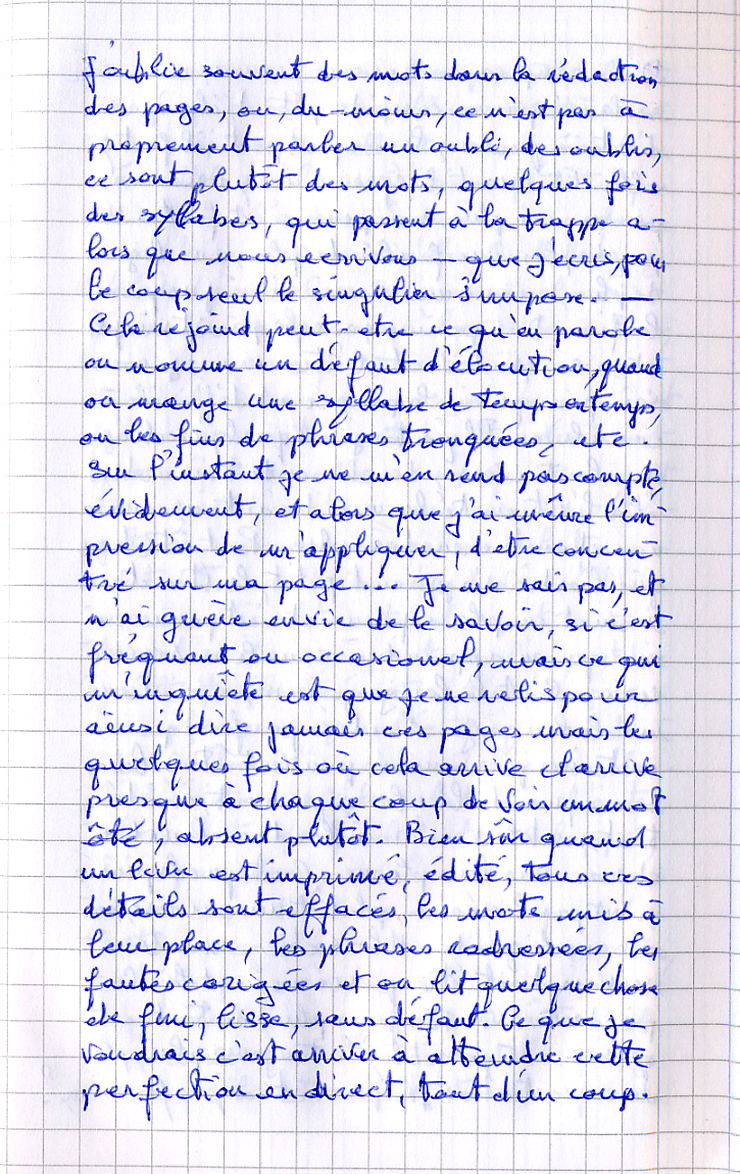 J'oublie souvent des mots dans la rédaction
des pages, ou, du-moins, ce n'est pas à
proprement parler un oubli, des oublis,
ce sont plutôt des mots, quelques fois
des syllabes, qui passent à la trappe a-
lors que nous écrivons — que j'écris, pour
le coup seul le singulier s'impose. —
Cela rejoind peut-etre ce qu'en parole
on nomme un défaut d'élocution, quand
on mange une syllabe de temps en temps,
ou les fins de phrases tronquées, etc.
Sur l'instant je ne m'en rend pas compte,
évidemment, et alors que j'ai même l'im-
pression de m'appliquer, d'etre concen-
tré sur ma page... Je ne sais pas, et
n'ai guère envie de le savoir, si c'est
fréquant ou occasionel, mais ce qui
m'inquiète est que je ne relis pour
ainsi dire jamais ces pages mais les
quelques fois où cela arrive et arrive
presque à chaque coup de voir un mot
ôté, absent plutôt. Bien sûr quand
un livre est imprimé, édité, tous ces
détails sont effacés, les mots mis à
leur place, les phrases redressées, les
fautes corigées et on lit quelque chose
de fini, lisse, sans défaut. Ce que je
voudrais c'est arriver à atteindre cette
perfection en direct, tout d'un coup.